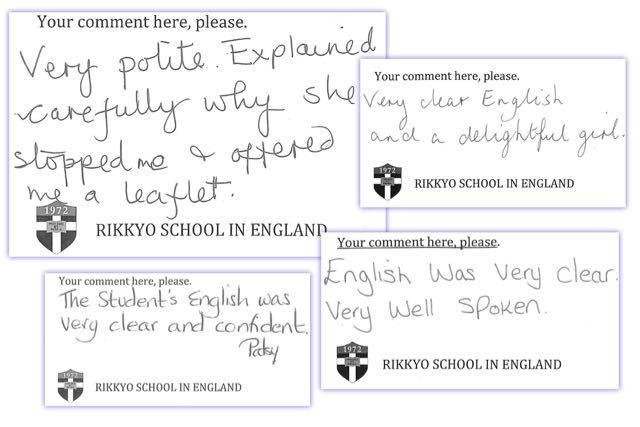 Your comment here, please.
Very polite. Explained
carefully why she
stopped me & offered
me a leaflet.
1972
RIKKYO SCHOOL IN ENGLAND
Your comment here, please.
Very clear English
and a delightful girl.
1972
RIKKYO SCHOOL IN ENGLAND
Your comment here, please.
The Student's English was
very clear and confident.
Patsy
1972
RIKKYO SCHOOL IN ENGLAND
Your comment here, please.
English Was Very Clear.
Very Well Spoken.
1972
RIKKYO SCHOOL IN ENGLAND